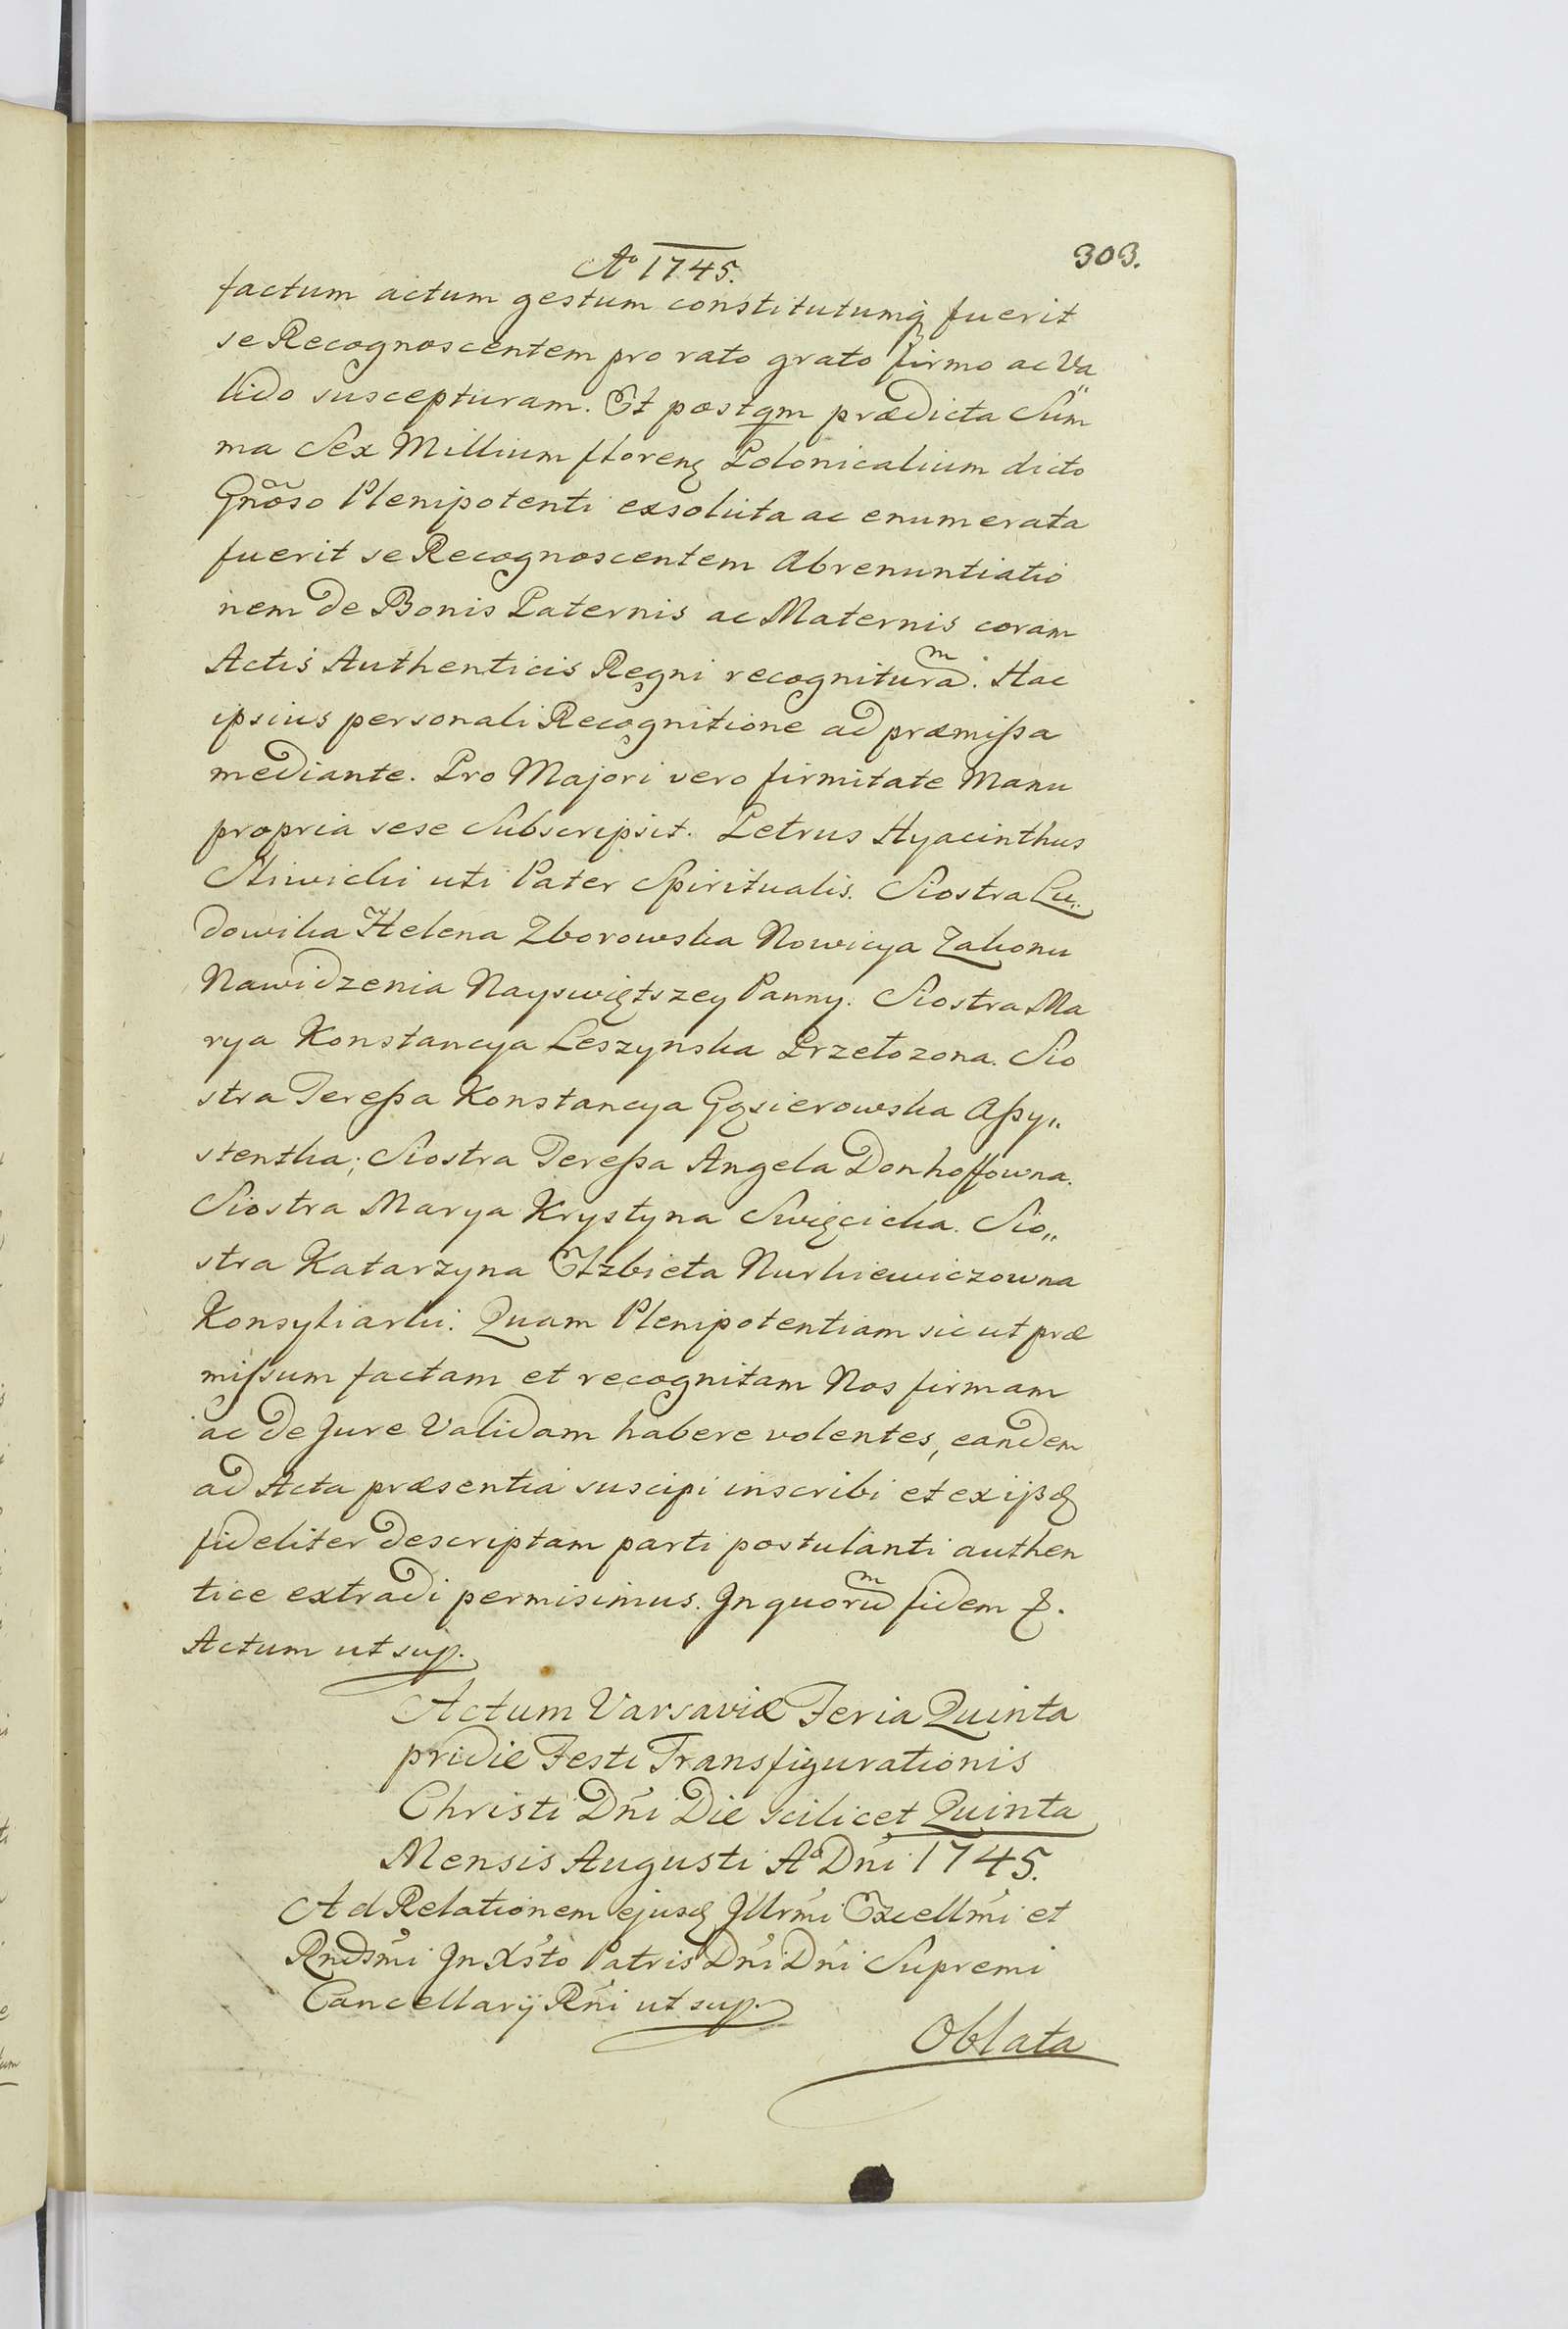 Aº 1745.
303.
factum actum gestum constitutumq; fuerit
se Recognoscentem pro rato grato firmo ac Va„
lido suscepturam. Et postqm prædicta Sum
ma Sex Millium floreng Polonicalium dicto
Gnõso Plenipotenti exsoluta ac enumerata
fuerit se Recognoscentem Abrenuntiatio
nem de Bonis Paternis ac Maternis coram
Actis Authenticis Regni recognituram. Hac
ipsius personali Recognitione ad præmißa
mediante. Pro Majori vero firmitate Manu
propria sese Subscripsit. Petrus Hyacinthus
Sliwicki uti Pater Spiritualis. Siostra Lu„
dowika Helena Zborowska Nowicya Zakonu
Nawidzenia Nayswiętszey Panny. Siostra Ma
rya Konstancya Leszynska Przełozona. Sio
stra Tereßa Konstancya Gąsierowska Aßy„
stentka; Siostra Tereßa Angela Donhoffowna.
Siostra Marya Krystyna Swięcicka. Sio„
stra Katarzyna Elzbieta Nurkiewiczowna
Konsyliarki. Quam Plenipotentiam sic ut præ
mißum factam et recognitam Nos firmam
ac de Jure Validam habere volentes, eandem
ad Acta præsentia suscipi inscribi et ex ijßd
fideliter descriptam parti postulanti authen
tice extradi permisimus. In quorum fidem &.
Actum ut sup.
Actum Varsaviæ Feria Quinta
pridie Festi Transfigurationis
Christi Dńi Die scilicet Quinta
Mensis Augusti Aº Dńi 1745.
Ad Relationem ejusd Illrmi Excellmi et
Rndsmi In Xsto Patris Dńi Dńi Supremi
Cancellarij Rńi ut sup.
Oblata